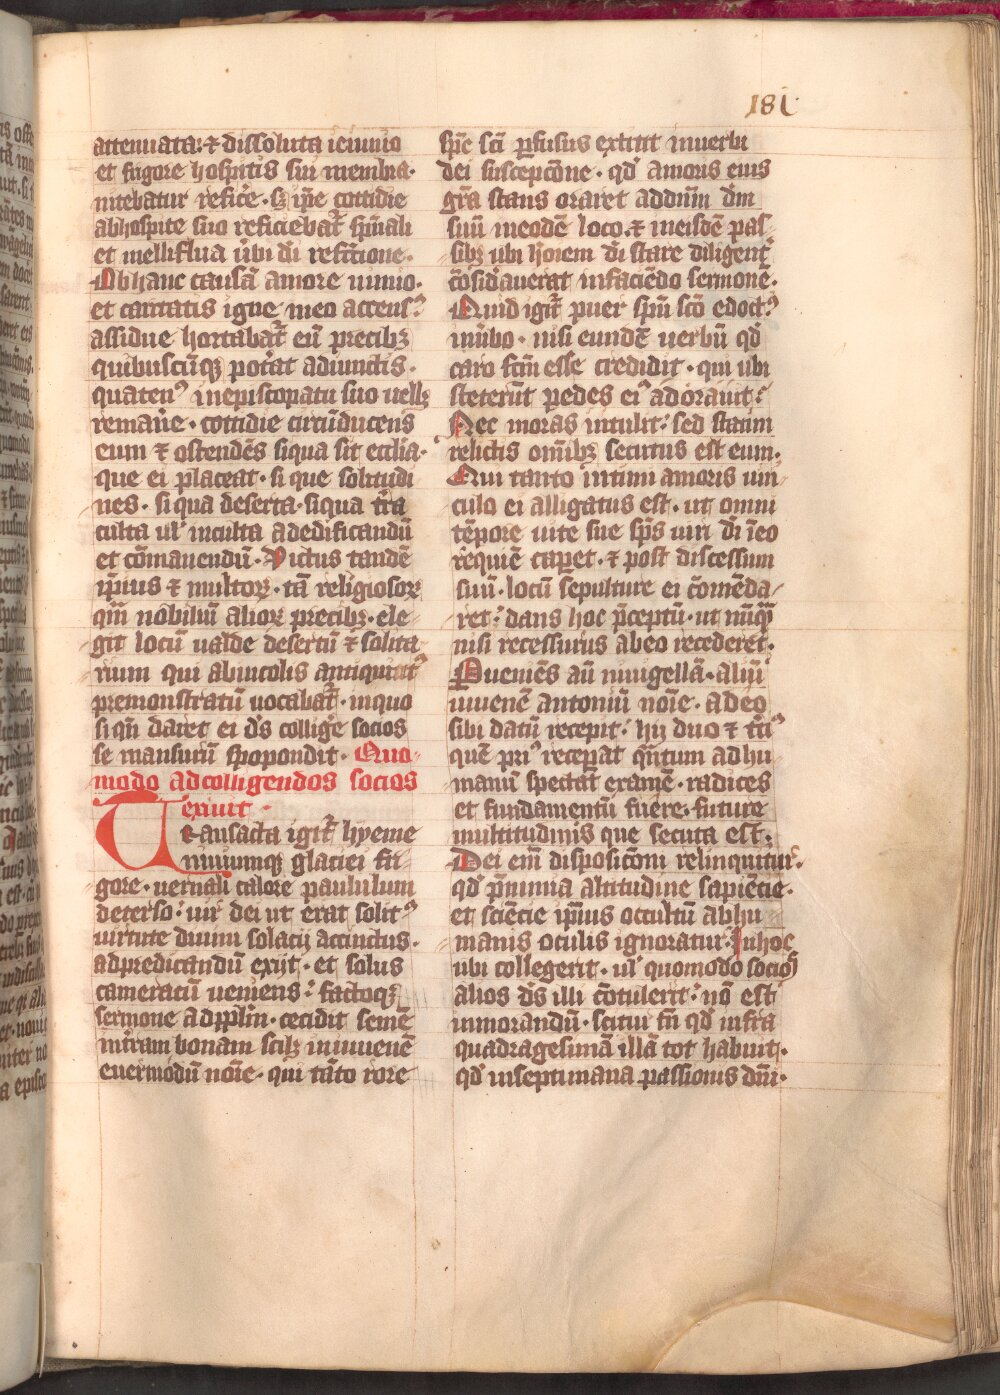 181
attenuata: ⁊ dissoluta ieiunio
et frigore hospitis sui membra·
nitebatur refic̄e· sȝ ip̄e cottidie
abhospite suo reficiebat᷑ spūali
et melliflua ūbi dī refectione·
Obhanc causā amore nimio·
et caritatis igne meo accensꝰ
assidue hortabat᷑ eū precibȝ
quibuscūqȝ pot̄at adiunctis·
quatenꝰ inepiscopatu suo uellȝ
reman̄e· cottidie circūducens
eum ⁊ ostendēs siqua sit ecclīa·
que ei placeat· si que solitudi
nes· si qua deserta· siqua tr̄ra
culta ul̄ inculta adedificandū
et cōmanendū· Victus tandē
ip̄ius ⁊ multoꝝ· tā religiosoꝝ
qm̄ nobiliū alioꝝ precibȝ· ele-
git locū ualde desertū ⁊ solita
rium qui abincolis antiquitꝰ
premonstratū uocabat᷑· inquo
si qn̄ daret ei dꝰs colliḡe socios
se mansurū spopondit· Quo-
modo adcolligendos socios
exiuit·
Transacta igit᷑ hyeme
niuiumqȝ glaciei fri-
gore· uernali calore paululum
deterso: uir dei ut erat solitꝰ
uirtute diuini solacij accinctus·
adpredicandū exijt· et solus
cameracū ueniens: factoqȝ
sermone adpp̄lm̄· cecidit semē
int̄ram bonam scilȝ iniuuenē
euermodū noīe· qui tāto rore
sp̄c sc̄i ꝑfusus extitit inuerbi
dei suscepcōne· qd̄ amoris eius
gr̄a stans oraret addn̄m dm̄
suū ineodē loco· ⁊ ineisdē pas-
sibȝ ubi hoīem dī stare diligent᷑
cōsid̄auerat infaciēdo sermonē·
Quid igit᷑ puer spū scō edoctꝰ
inūbo· nisi eundē uerbū qd̄
caro fcm̄ esse credidit· qui ubi
steterūt pedes eiꝰ adorauit:
Nec moras intulit: sed statim
relictis omībȝ secutus est eum·
Qui tanto intimi amoris uin-
culo ei alligatus est· ut omni
tēpore uite sue sp̄s uiri dī ī eo
requiē cap̄et· ⁊ post discessum
suū· locū sepulture ei cōmēda-
ret: dans hoc p̄ceptū· ut nūqꝫ
nisi recessurus abeo recederet·
Pueniēs aū niuigellā· aliū
iuuenē antoniū noīe· adeo
sibi datū recepit: hij duo ⁊ t̄ciꝰ
quē priꝰ recep̄at qn̄tum adhu-
manū spectat examē· radices
et fundamentū fuere· future
multitudinis que secuta est:
Dei eīm disposicōni relinquitur·
qd̄ p̄nimia altitudine sapiēcie·
et sciēcie ip̄ius occultū abhu-
manis oculis ignoratur: Inhoc
ubi collegerit· ul̄ quomodo socios
alios dꝰs illi cōtulerit: nō est
inmorandū· scitur tn̄ qd̄ infra
quadragesimā illā tot habuit·
qd̄ inseptimana passionis dn̄i·